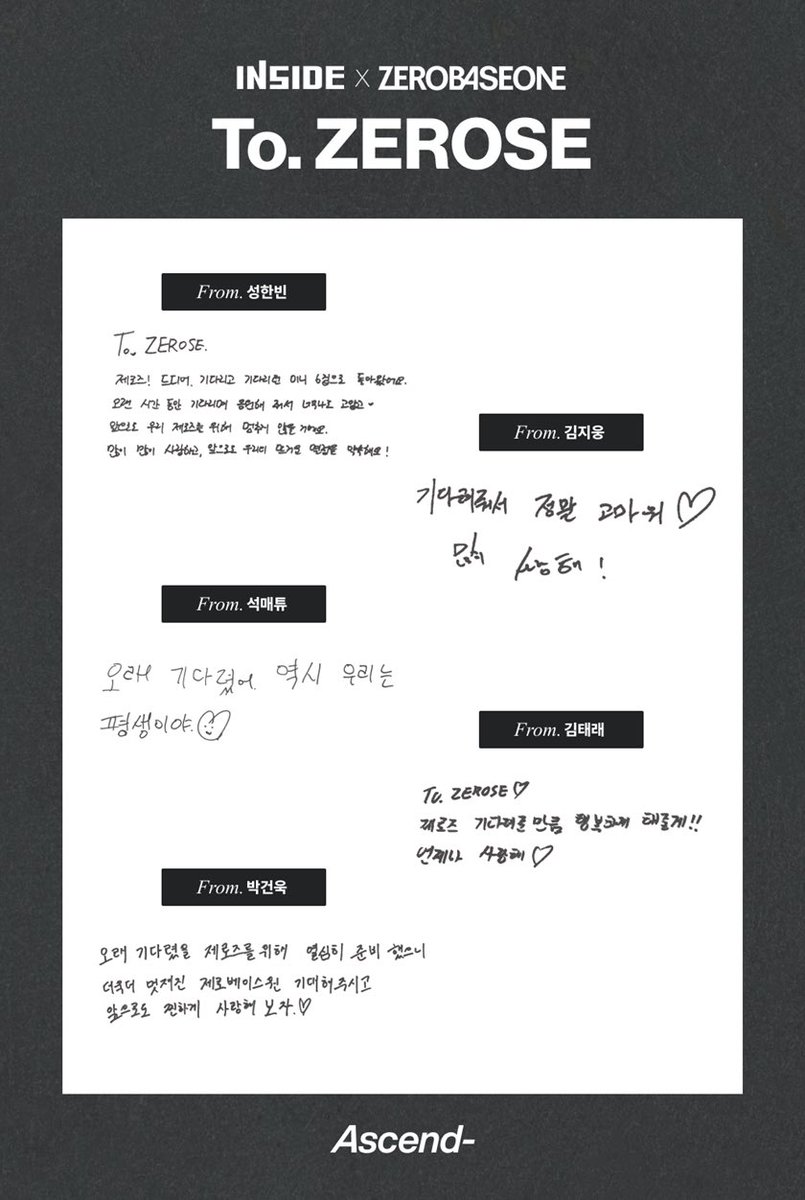 INSIDE X ZEROBASEONE
To. ZEROSE
From. 성한빈
To. ZEROSE.
제로즈! 드디어, 기다리고 기다리던 미니 6집으로 돌아왔어요.
오랜 시간 동안 기다리며 응원해 줘서 너무나도 고맙고~
앞으로도 우리 제로즈를 위해 멈추지 않을 거예요.
많이 많이 사랑하고, 앞으로도 우리의 뜨거운 열정을 약속해요!
From. 김지웅
기다려줘서 정말 고마워♡
많이 사랑해!
From. 석매튜
오래 기다렸어. 역시 우리는
평생이야.♡
From. 김태래
To. ZEROSE♡
제로즈 기다려준만큼 행복하게 해줄게!!
언제나 사랑해♡
From. 박건욱
오래 기다렸을 제로즈를 위해 열심히 준비 했으니
더욱더 멋져진 제로베이스원 기대해주시고
앞으로도 찐하게 사랑해 보자.♡
Ascend-